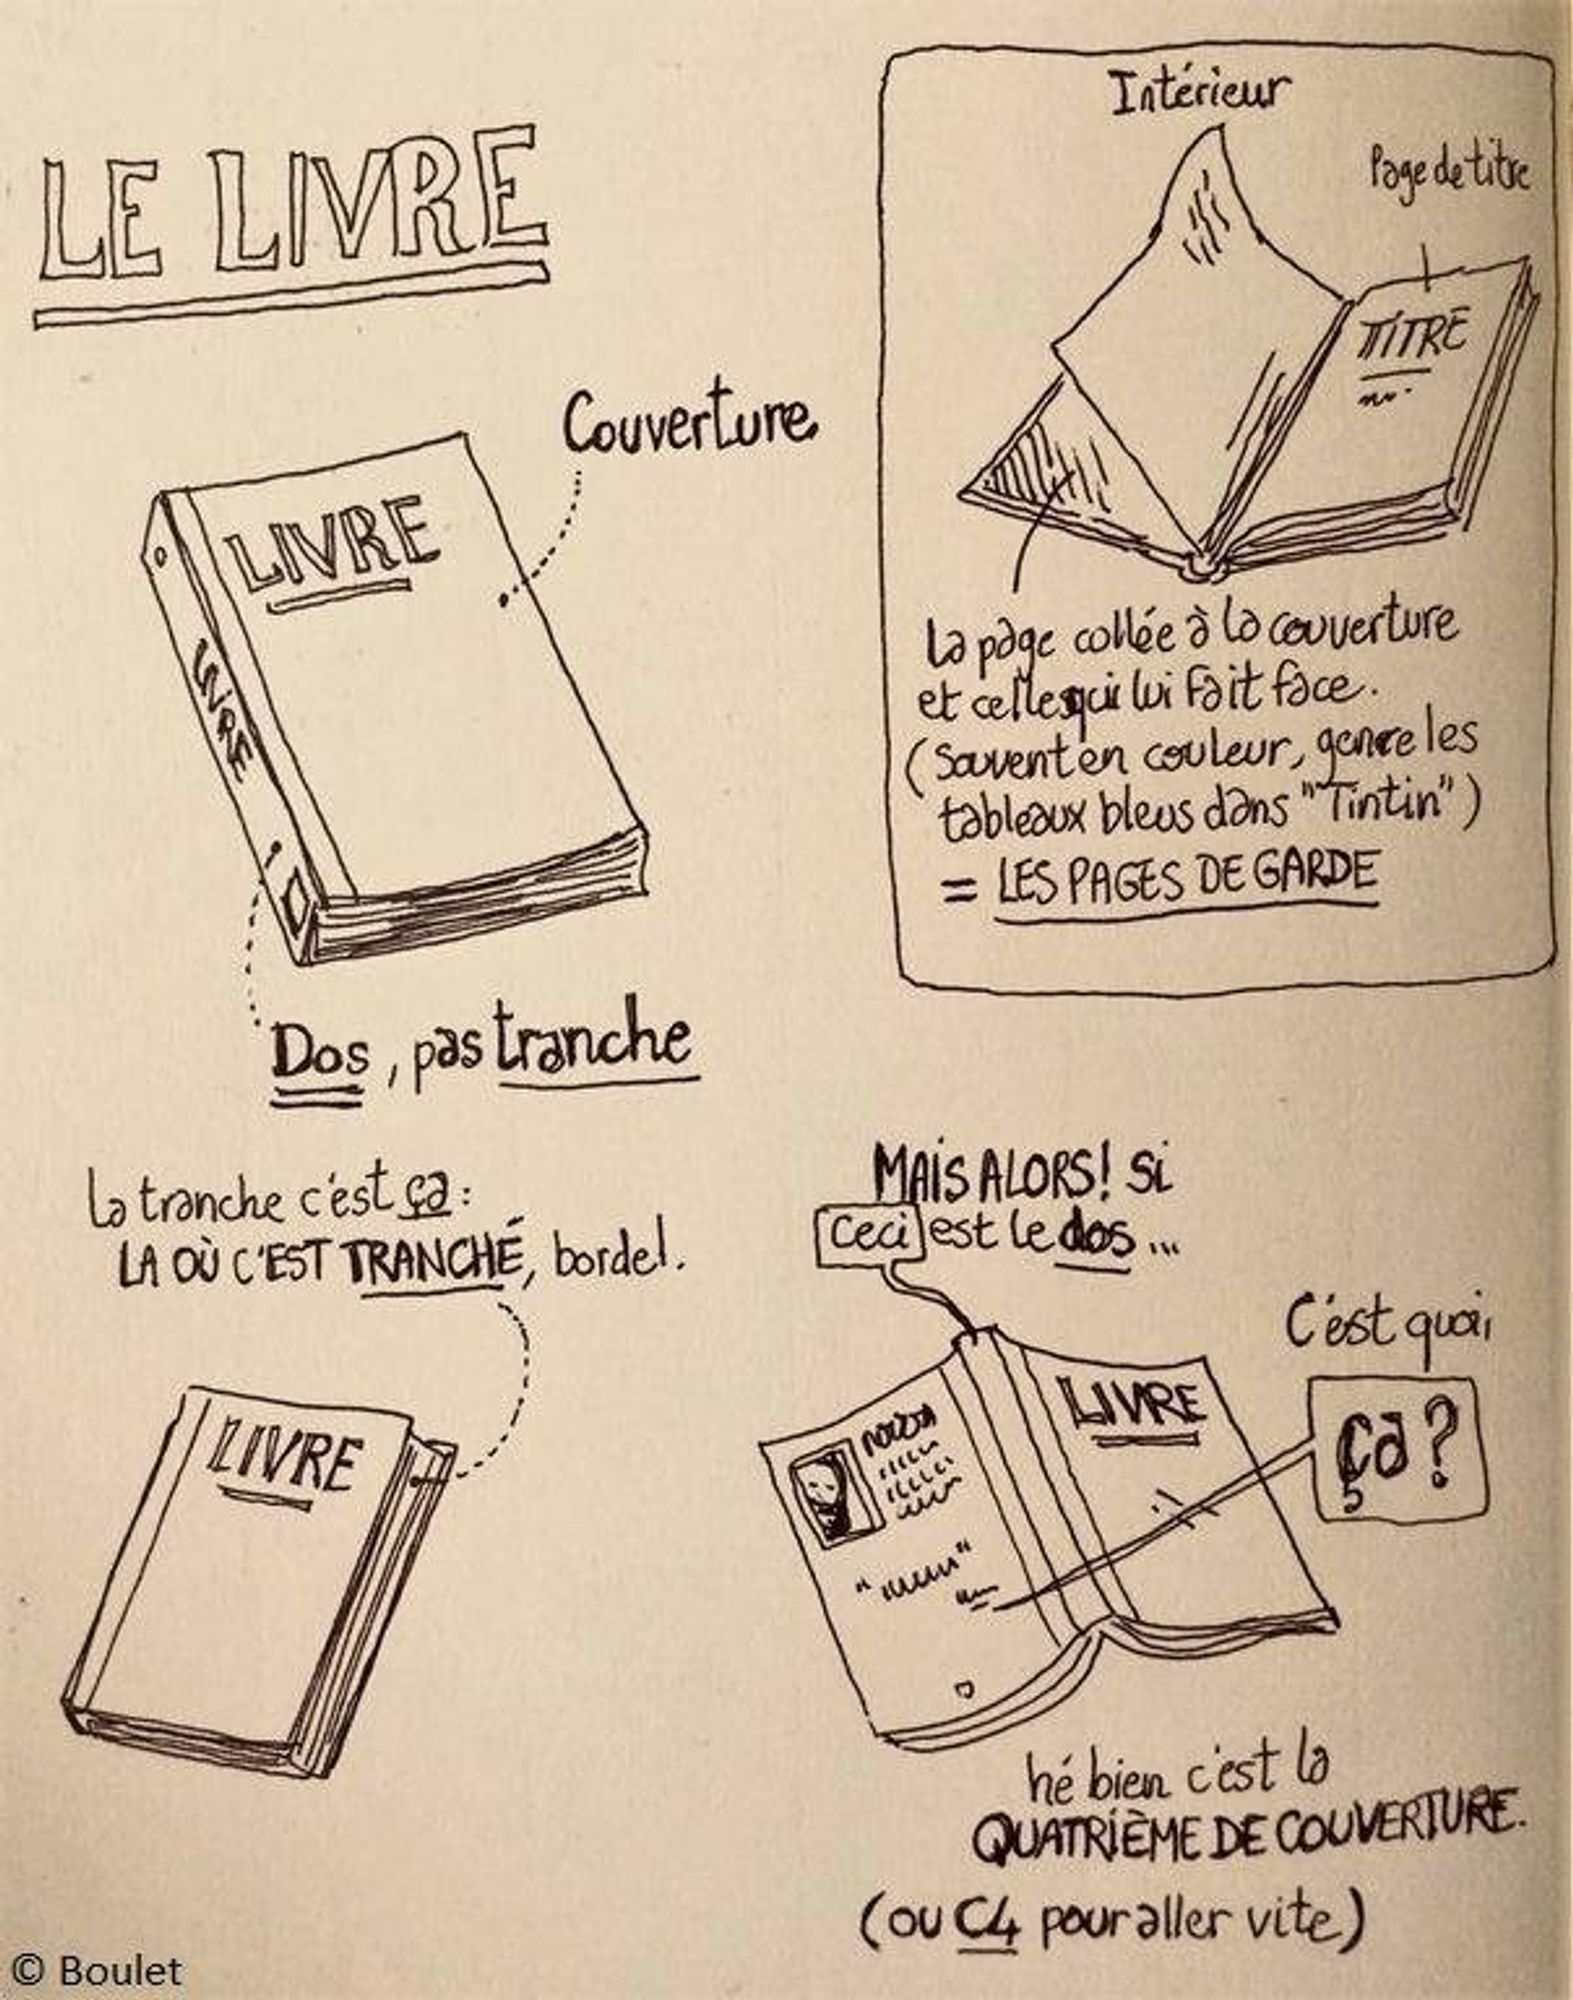 LE LIVRE
Couverture
LIVRE
LIVRE
Dos, pas tranche
Intérieur
Page de titre
TITRE
La page collée à la couverture
et celles qui lui fait face.
(Souvent en couleur, genre les
tableaux bleus dans "Tintin")
= LES PAGES DE GARDE
La tranche c'est ça :
LA OÙ C'EST TRANCHÉ, bordel.
LIVRE
MAIS ALORS! Si
Ceci est le dos...
C'est quoi,
ça ?
LIVRE
hé bien c'est la
QUATRIÈME DE COUVERTURE.
(ou C4 pour aller vite)
© Boulet